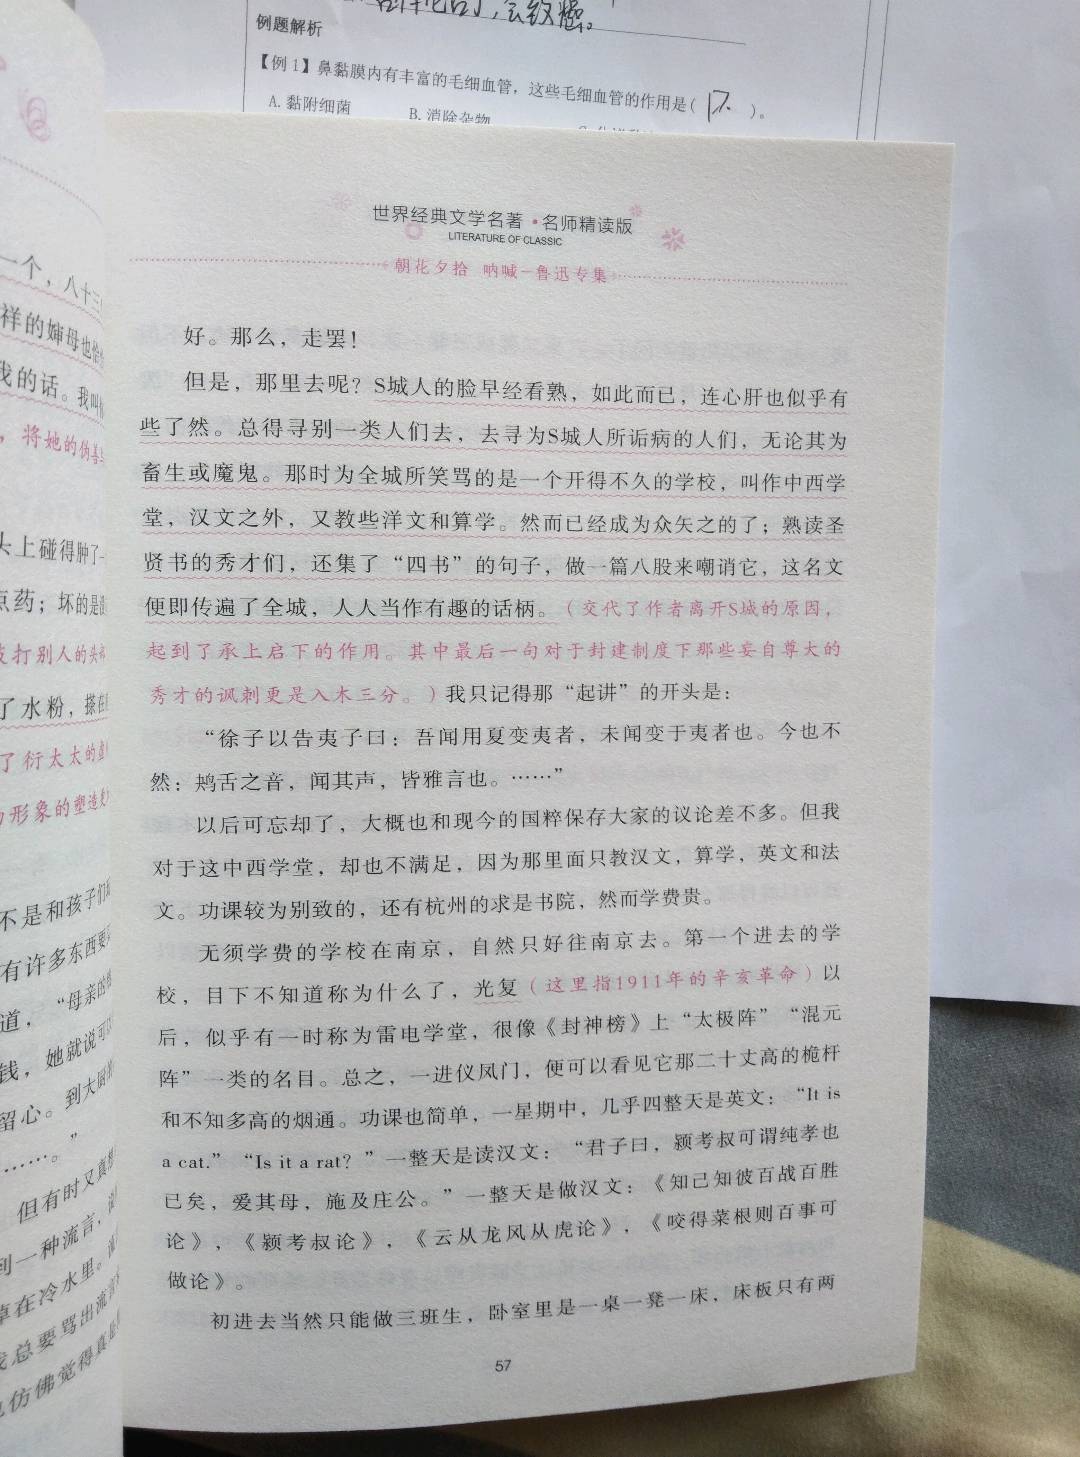 例题解析
【例1】鼻黏膜内有丰富的毛细血管，这些毛细血管的作用是(   )。
A. 黏附细菌
B. 消除杂物
世界经典文学名著·名师精读版
LITERATURE OF CLASSIC
朝花夕拾 呐喊－鲁迅专集
好。那么，走罢！
但是，那里去呢？S城人的脸早经看熟，如此而已，连心肝也似乎有
些了然。总得寻别一类人们去，去寻为S城人所诟病的人们，无论其为
畜生或魔鬼。那时为全城所笑骂的是一个开得不久的学校，叫作中西学
堂，汉文之外，又教些洋文和算学。然而已经成为众矢之的了；熟读圣
贤书的秀才们，还集了“四书”的句子，做一篇八股来嘲诮它，这名文
便即传遍了全城，人人当作有趣的话柄。（交代了作者离开S城的原因，
起到了承上启下的作用。其中最后一句对于封建制度下那些妄自尊大的
秀才的讽刺更是入木三分。）我只记得那“起讲”的开头是：
“徐子以告夷子曰：吾闻用夏变夷者，未闻变于夷者也。今也不
然：鸠舌之音，闻其声，皆雅言也。……”
以后可忘却了，大概也和现今的国粹保存大家的议论差不多。但我
对于这中西学堂，却也不满足，因为那里面只教汉文，算学，英文和法
文。功课较为别致的，还有杭州的求是书院，然而学费贵。
无须学费的学校在南京，自然只好往南京去。第一个进去的学
校，目下不知道称为什么了，光复（这里指1911年的辛亥革命）以
后，似乎有一时称为雷电学堂，很像《封神榜》上“太极阵”“混元
阵”一类的名目。总之，一进仪凤门，便可以看见它那二十丈高的桅杆
和不知多高的烟通。功课也简单，一星期中，几乎四整天是英文：“It is
a cat.”“Is it a rat？”一整天是读汉文：“君子曰，颍考叔可谓纯孝也
已矣，爱其母，施及庄公。”一整天是做汉文：《知己知彼百战百胜
论》，《颍考叔论》，《云从龙风从虎论》，《咬得菜根则百事可
做论》。
初进去当然只能做三班生，卧室里是一桌一凳一床，床板只有两
57
一个，八十三
祥的婶母也恰
我的话。我叫
，将她的伪善
头上碰得肿了一
点药；坏的是
打别人的头
了水粉，搽在
了衍太太的虚
形象的塑造
不是和孩子们
有许多东西要
道，“母亲的
钱，她就说可
留心。到大厨
……。”
但有时又真想
到一种流言，
掉在冷水里。
总要骂出流言
仿佛觉得真